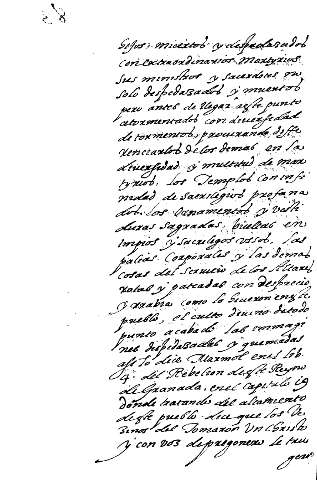 hijos, muertos y despedazados
con extraordinarios Martyrios
sus ministros y sacerdotes no
solo despedazados y muertos
pero antes de llegar a este punto
atormentados con diversidad
de tormentos, procurando diffe
renciarlos de los demas en la
diversidad y multitud de mar
tyrios, los Templos con infi
nidad de sacrilegios profana
dos, los Ornamentos y vesti
duras sagradas, bueltas en
impios y sacrilegos usos, las
palias Corporales y las demas
cosas del servicio de los Altares
rotas y pateadas con desprecio
y rrabia como lo hicieron en este
pueblo, el culto divino de todo
punto acabado las ymagi
nes despedaçadas y quemadas
assi lo dice Marmol en el lib.
4. del Rebelion de este Reyno
de Granada, en el capitulo 19
donde tratando del alçamiento
de este pueblo dice que los Ve
zinos del Tomaron un Christo
y con voz de pregonero le tru
geron